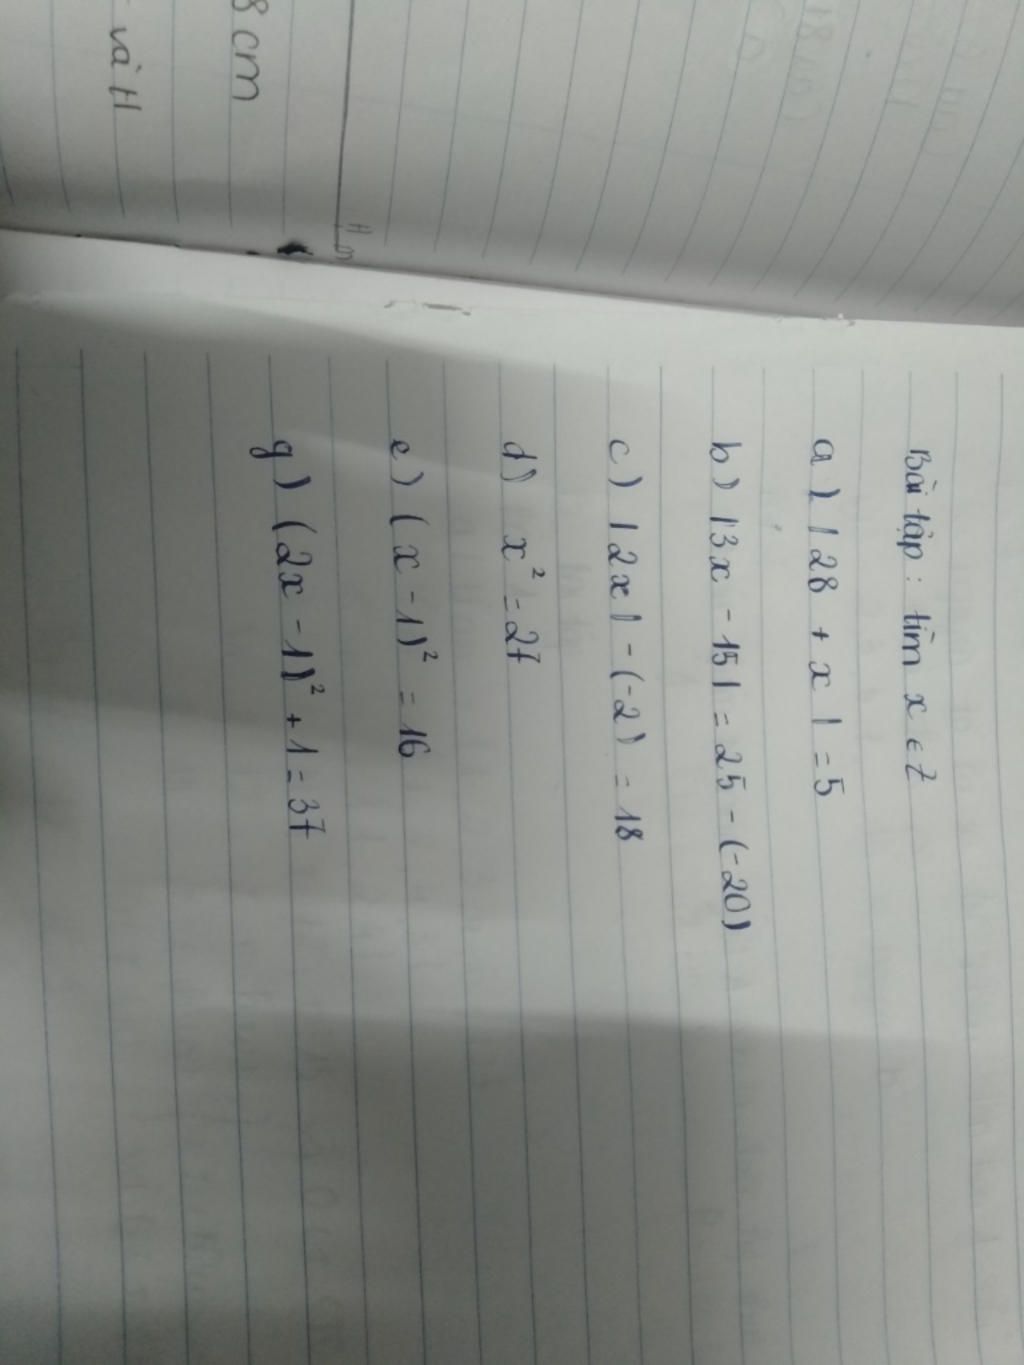 8 cm
và H
Bài tập : tìm x ∈ Z
a) | 28 + x | = 5
b) | 3x - 15 | = 25 - (-20)
c) | 2x | - (-2) = 18
d) x² = 27
e) (x - 1)² = 16
g) (2x - 1)² + 1 = 37